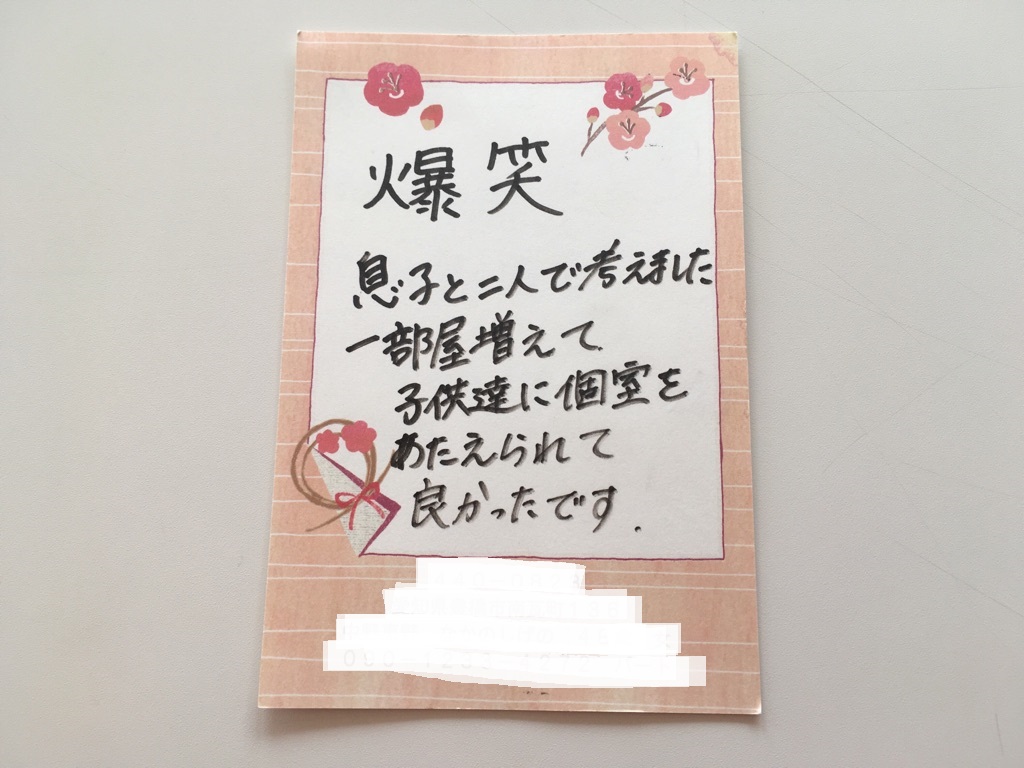 爆笑
息子と二人で考えました
一部屋増えて
子供達に個室を
あたえられて
良かったです.